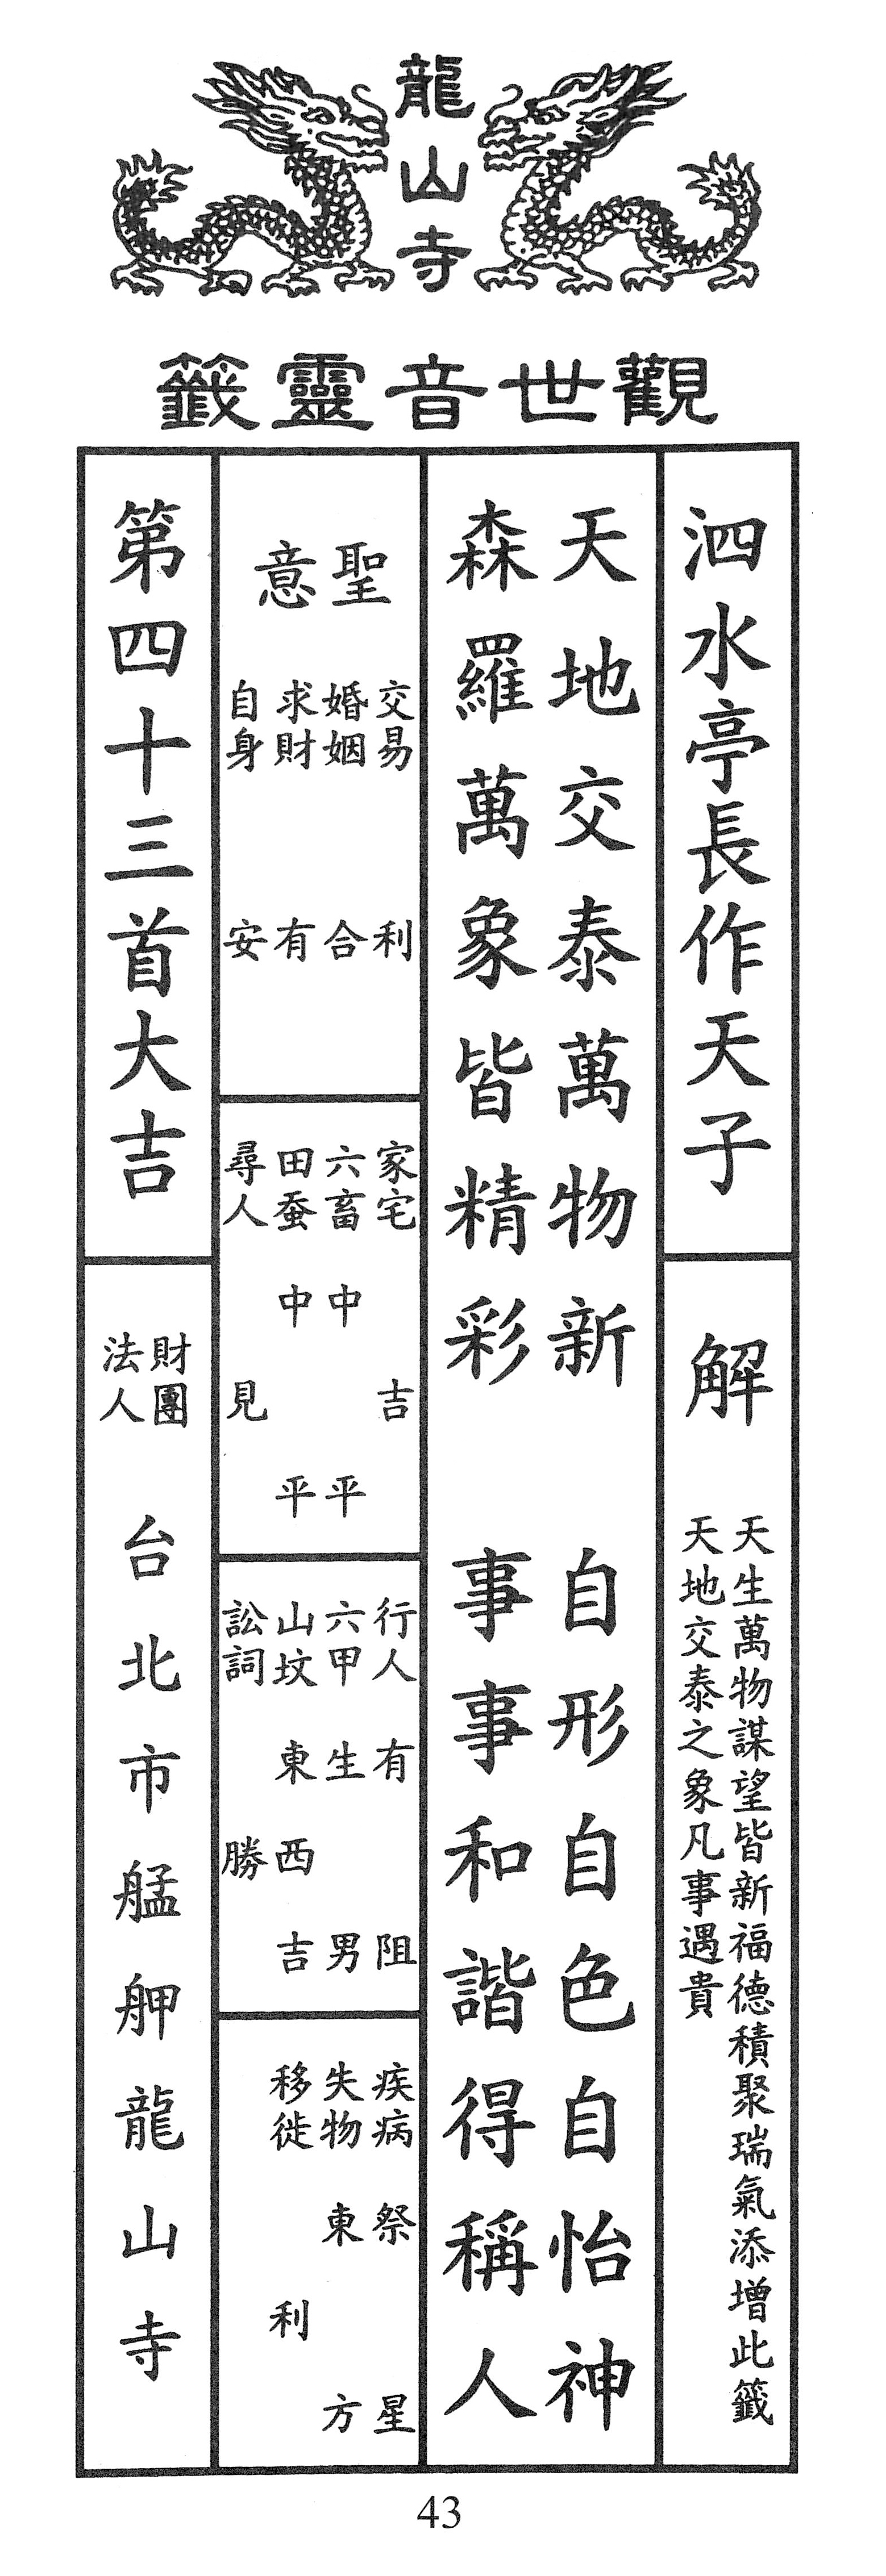 龍山寺
觀世音靈籤
泗水亭長作天子
解
天生萬物謀望皆新福德積聚瑞氣添增此籤
天地交泰之象凡事遇貴
天地交泰萬物新 自形自色自怡神
森羅萬象皆精彩 事事和諧得稱人
聖意
交易 利
婚姻 合
求財 有
自身 安
家宅 吉
六畜 中平
田蚕 中平
尋人 見
行人 有阻
六甲 生男
山坟 東西吉
訟詞 勝
疾病 祭星
失物 東方
移徙 利
第四十三首大吉
財團
法人
台北市艋舺龍山寺
43